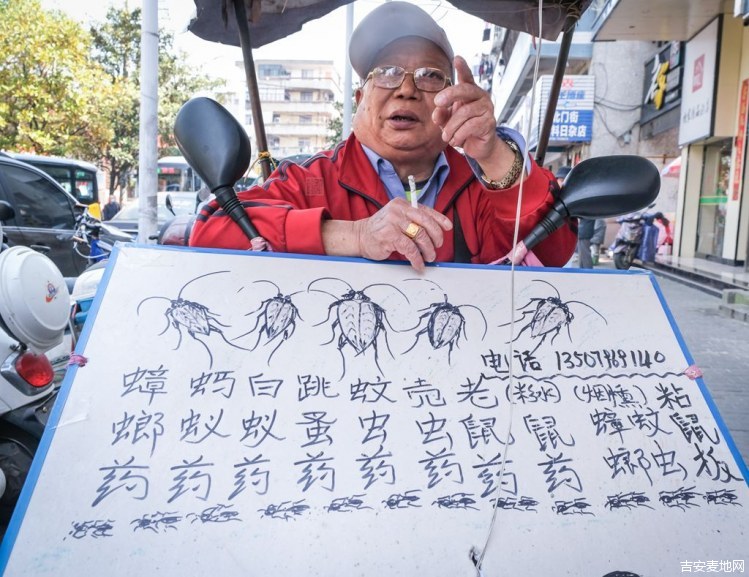 电话 13507969140
蟑螂药
蚂蚁药
白蚁药
跳蚤药
蚊虫药
壳虫药
老鼠药
(粉水)鼠药
(烟燻)蟑螂蚊虫
粘鼠板
门街
料日杂店
吉安麦地网